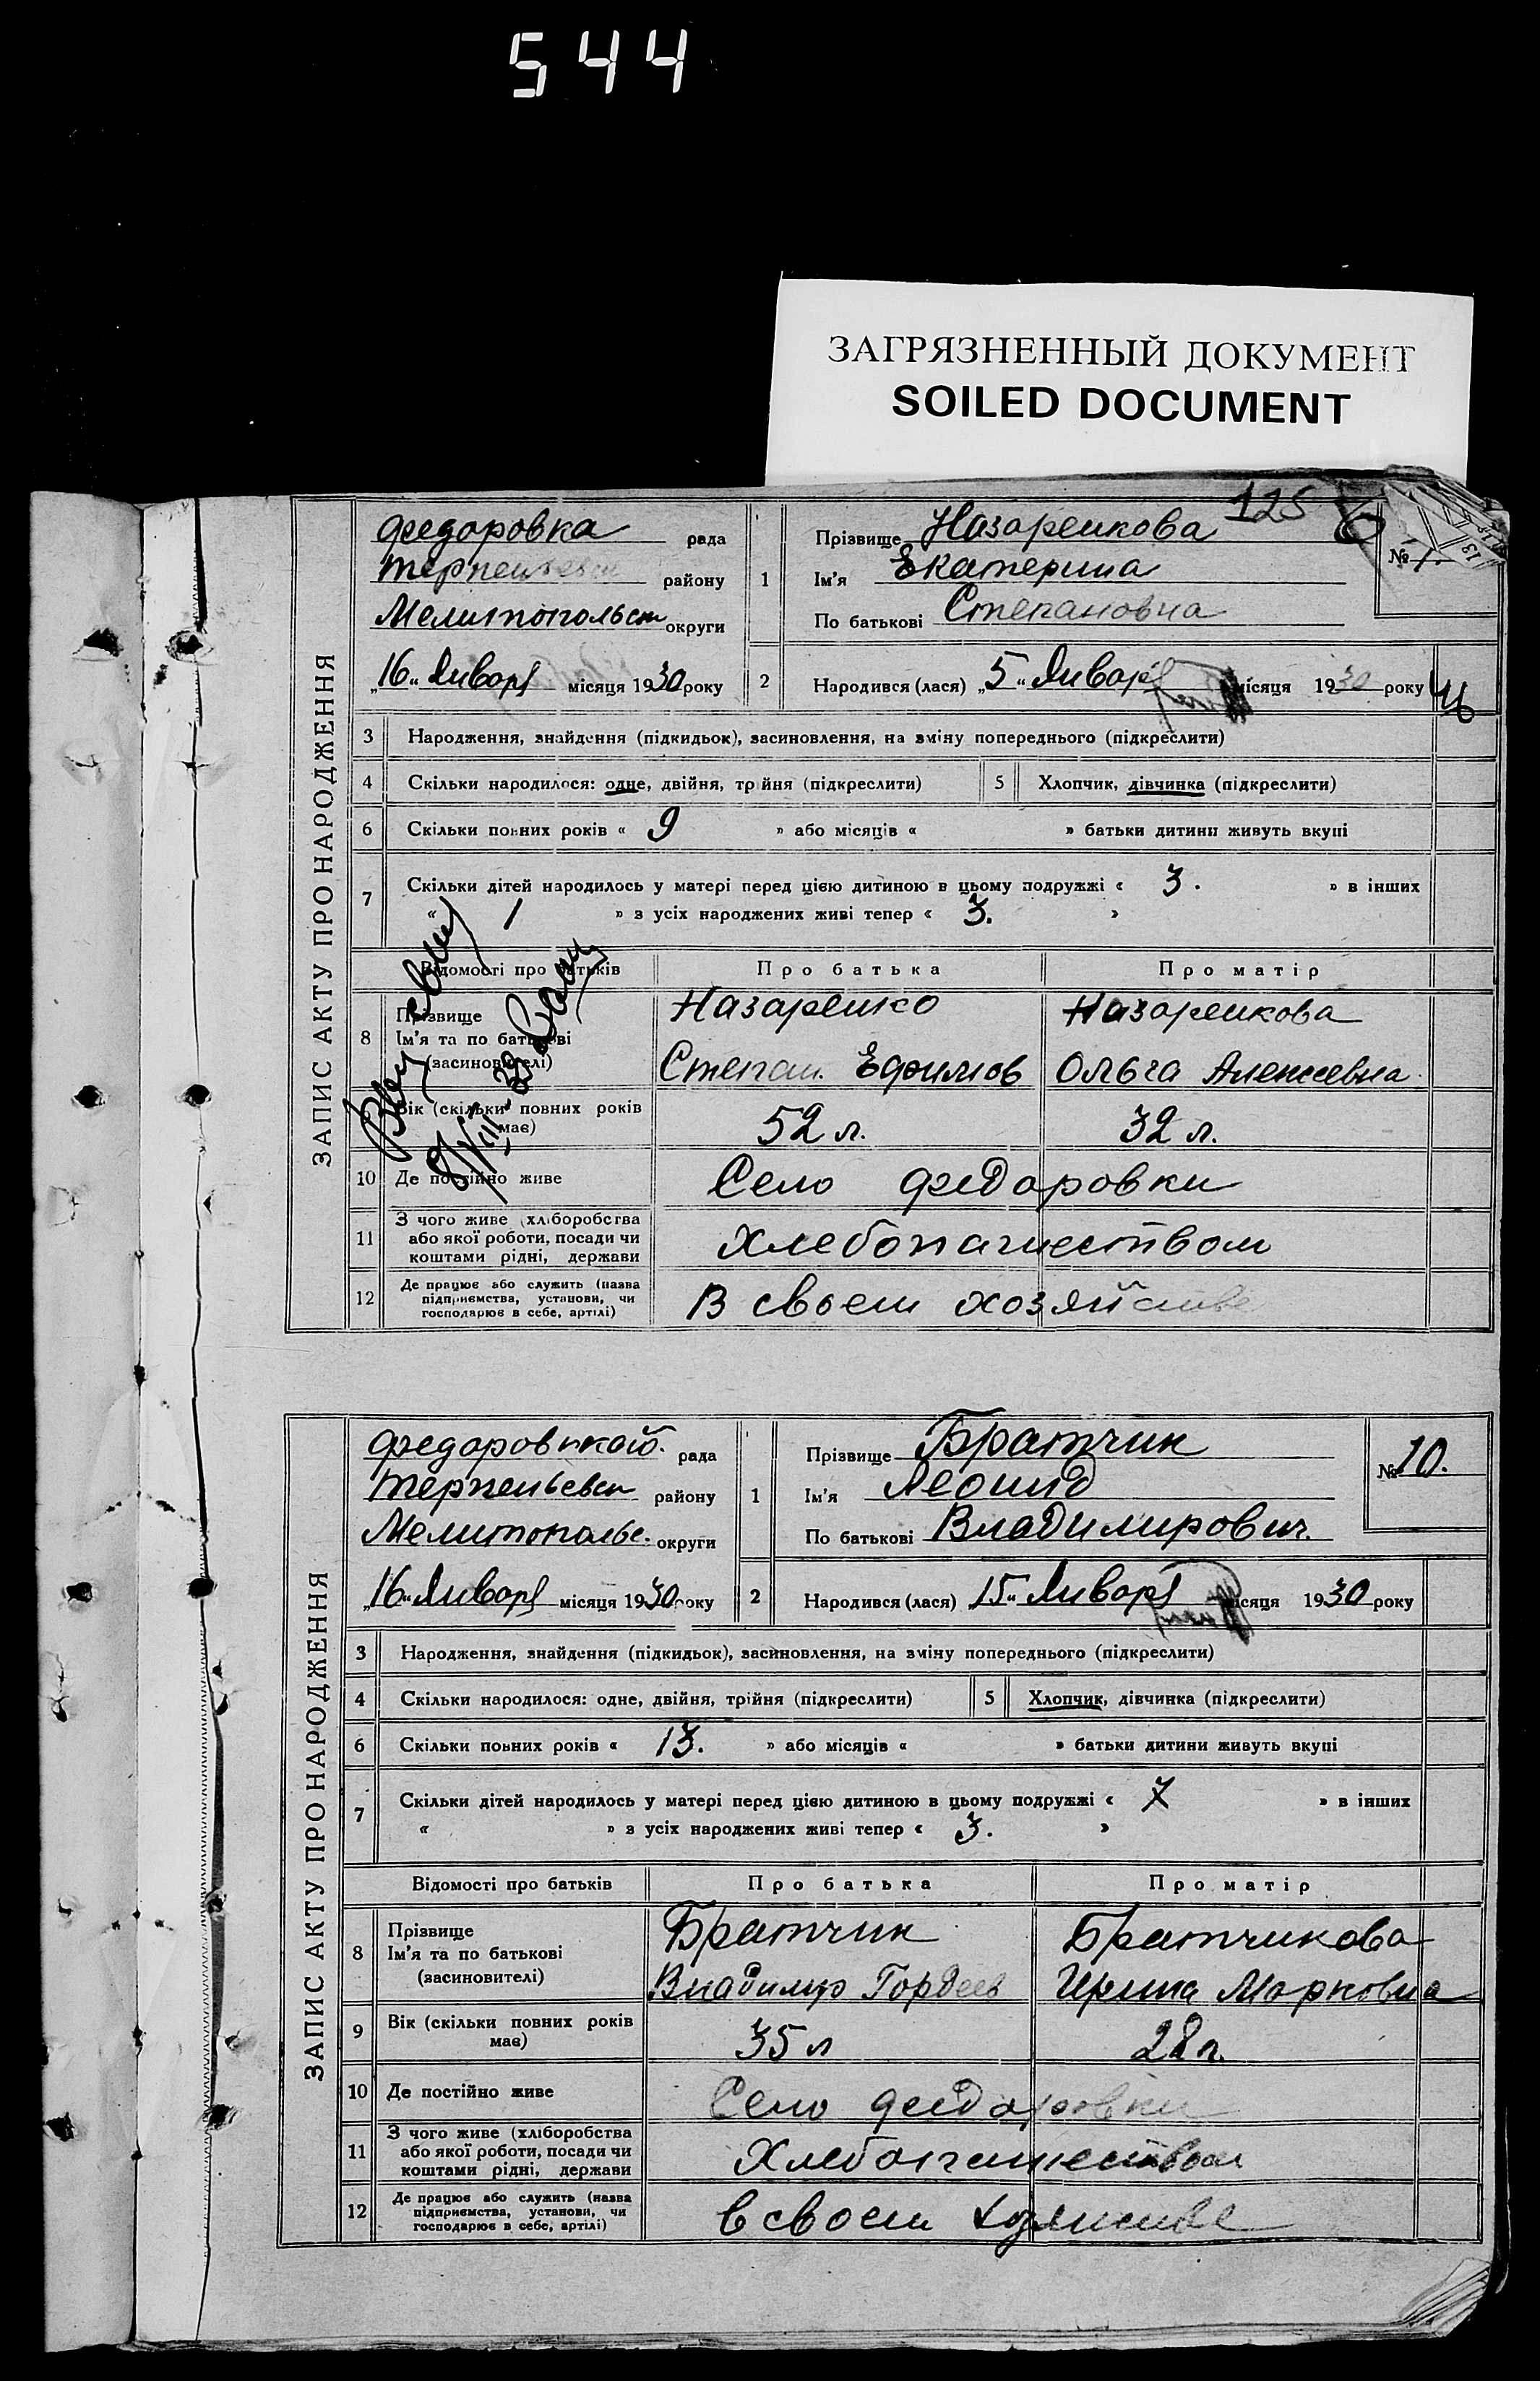 544
ЗАГРЯЗНЕННЫЙ ДОКУМЕНТ
SOILED DOCUMENT
125
ЗАПИС АКТУ ПРО НАРОДЖЕННЯ
Федоровка рада
района району
Мелитопольск округи
„16„ Января місяця 1930 року
1 Прізвище Назаренкова
Ім'я Екатерина
По батькові Степановна
№
2 Народився (лася) „5„ Января місяця 1930 року
3 Народження, знайдення (підкидьок), засиновлення, на зміну попереднього (підкреслити)
4 Скільки народилося: одне, двійня, трійня (підкреслити) 5 Хлопчик, дівчинка (підкреслити)
6 Скільки повних років « 9 » або місяців « » батьки дитини живуть вкупі
7 Скільки дітей народилось у матері перед цією дитиною в цьому подружжі « 3. » в інших
« 1 » з усіх народжених живі тепер « 3. »
Відомості про батьків Про батька Про матір
8 Прізвище Назаренко Назаренкова
Ім'я та по батькові
(засиновителі) Степан Ефимов Ольга Алексеевна
Вік (скільки повних років
має) 52 л. 32 л.
10 Де постійно живе Село Федоровки
11 З чого живе (хліборобства
або якої роботи, посади чи
коштами рідні, держави Хлебопашеством
12 Де працює або служить (назва
підприємства, установи, чи
господарює в себе, артілі) В своем хозяйстве
ЗАПИС АКТУ ПРО НАРОДЖЕННЯ
Федоровской. рада
Терпеньевск району
Мелитопольс. округи
„16„ Января місяця 1930 року
1 Прізвище Братчик
Ім'я Леонид
По батькові Владимирович
№ 10.
2 Народився (лася) „15„ Января місяця 1930 року
3 Народження, знайдення (підкидьок), засиновлення, на зміну попереднього (підкреслити)
4 Скільки народилося: одне, двійня, трійня (підкреслити) 5 Хлопчик, дівчинка (підкреслити)
6 Скільки повних років « 13. » або місяців « » батьки дитини живуть вкупі
7 Скільки дітей народилось у матері перед цією дитиною в цьому подружжі « » в інших
« » з усіх народжених живі тепер « 3. »
Відомості про батьків Про батька Про матір
8 Прізвище Братчик Братчикова
Ім'я та по батькові
(засиновителі) Владимир Гордеев Ирина Марковна
9 Вік (скільки повних років
має) 35 л 28 л.
10 Де постійно живе Село Федоровки
11 З чого живе (хліборобства
або якої роботи, посади чи
коштами рідні, держави Хлебопашеством
12 Де працює або служить (назва
підприємства, установи, чи
господарює в себе, артілі) в своем хозяистве